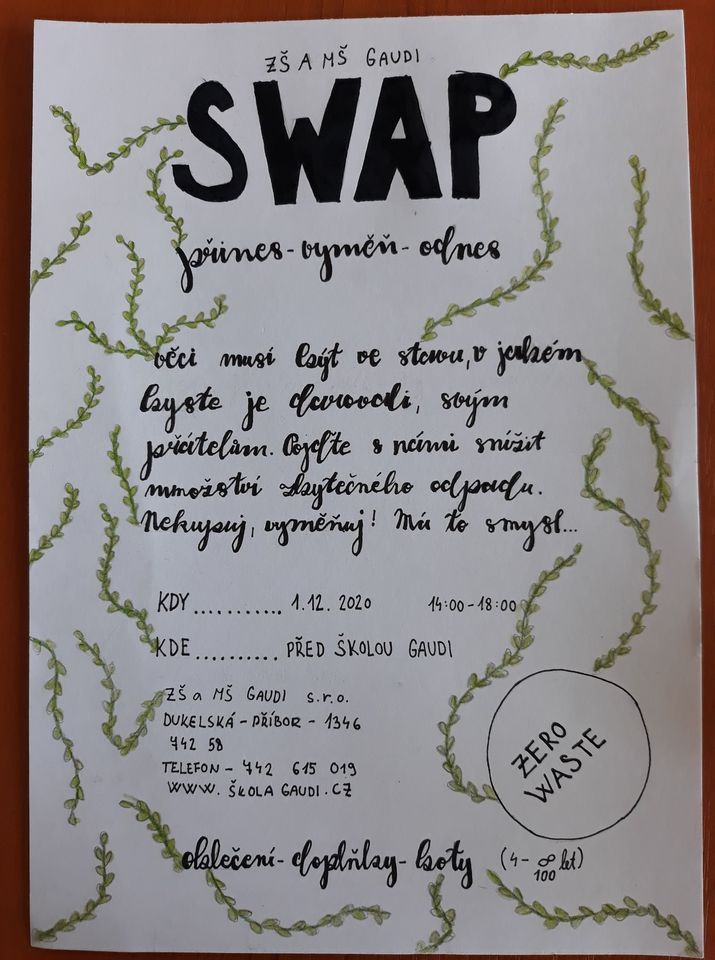 ZŠ A MŠ GAUDI
SWAP
přines - vyměň - odnes
věci musí být ve stavu, v jakém
byste je darovali, svým
přátelům. Pojďte s námi snížit
množství zbytečného odpadu.
Nekupuj, vyměňuj! Má to smysl...
KDY ........... 1.12. 2020 14:00 - 18:00
KDE .......... PŘED ŠKOLOU GAUDI
ZŠ a MŠ GAUDI s.r.o.
DUKELSKÁ - PŘÍBOR - 1346
742 58
TELEFON - 742 615 019
WWW. ŠKOLA GAUDI.CZ
ZERO
WASTE
oblečení - doplňky - boty (4 - ∞ let)
100